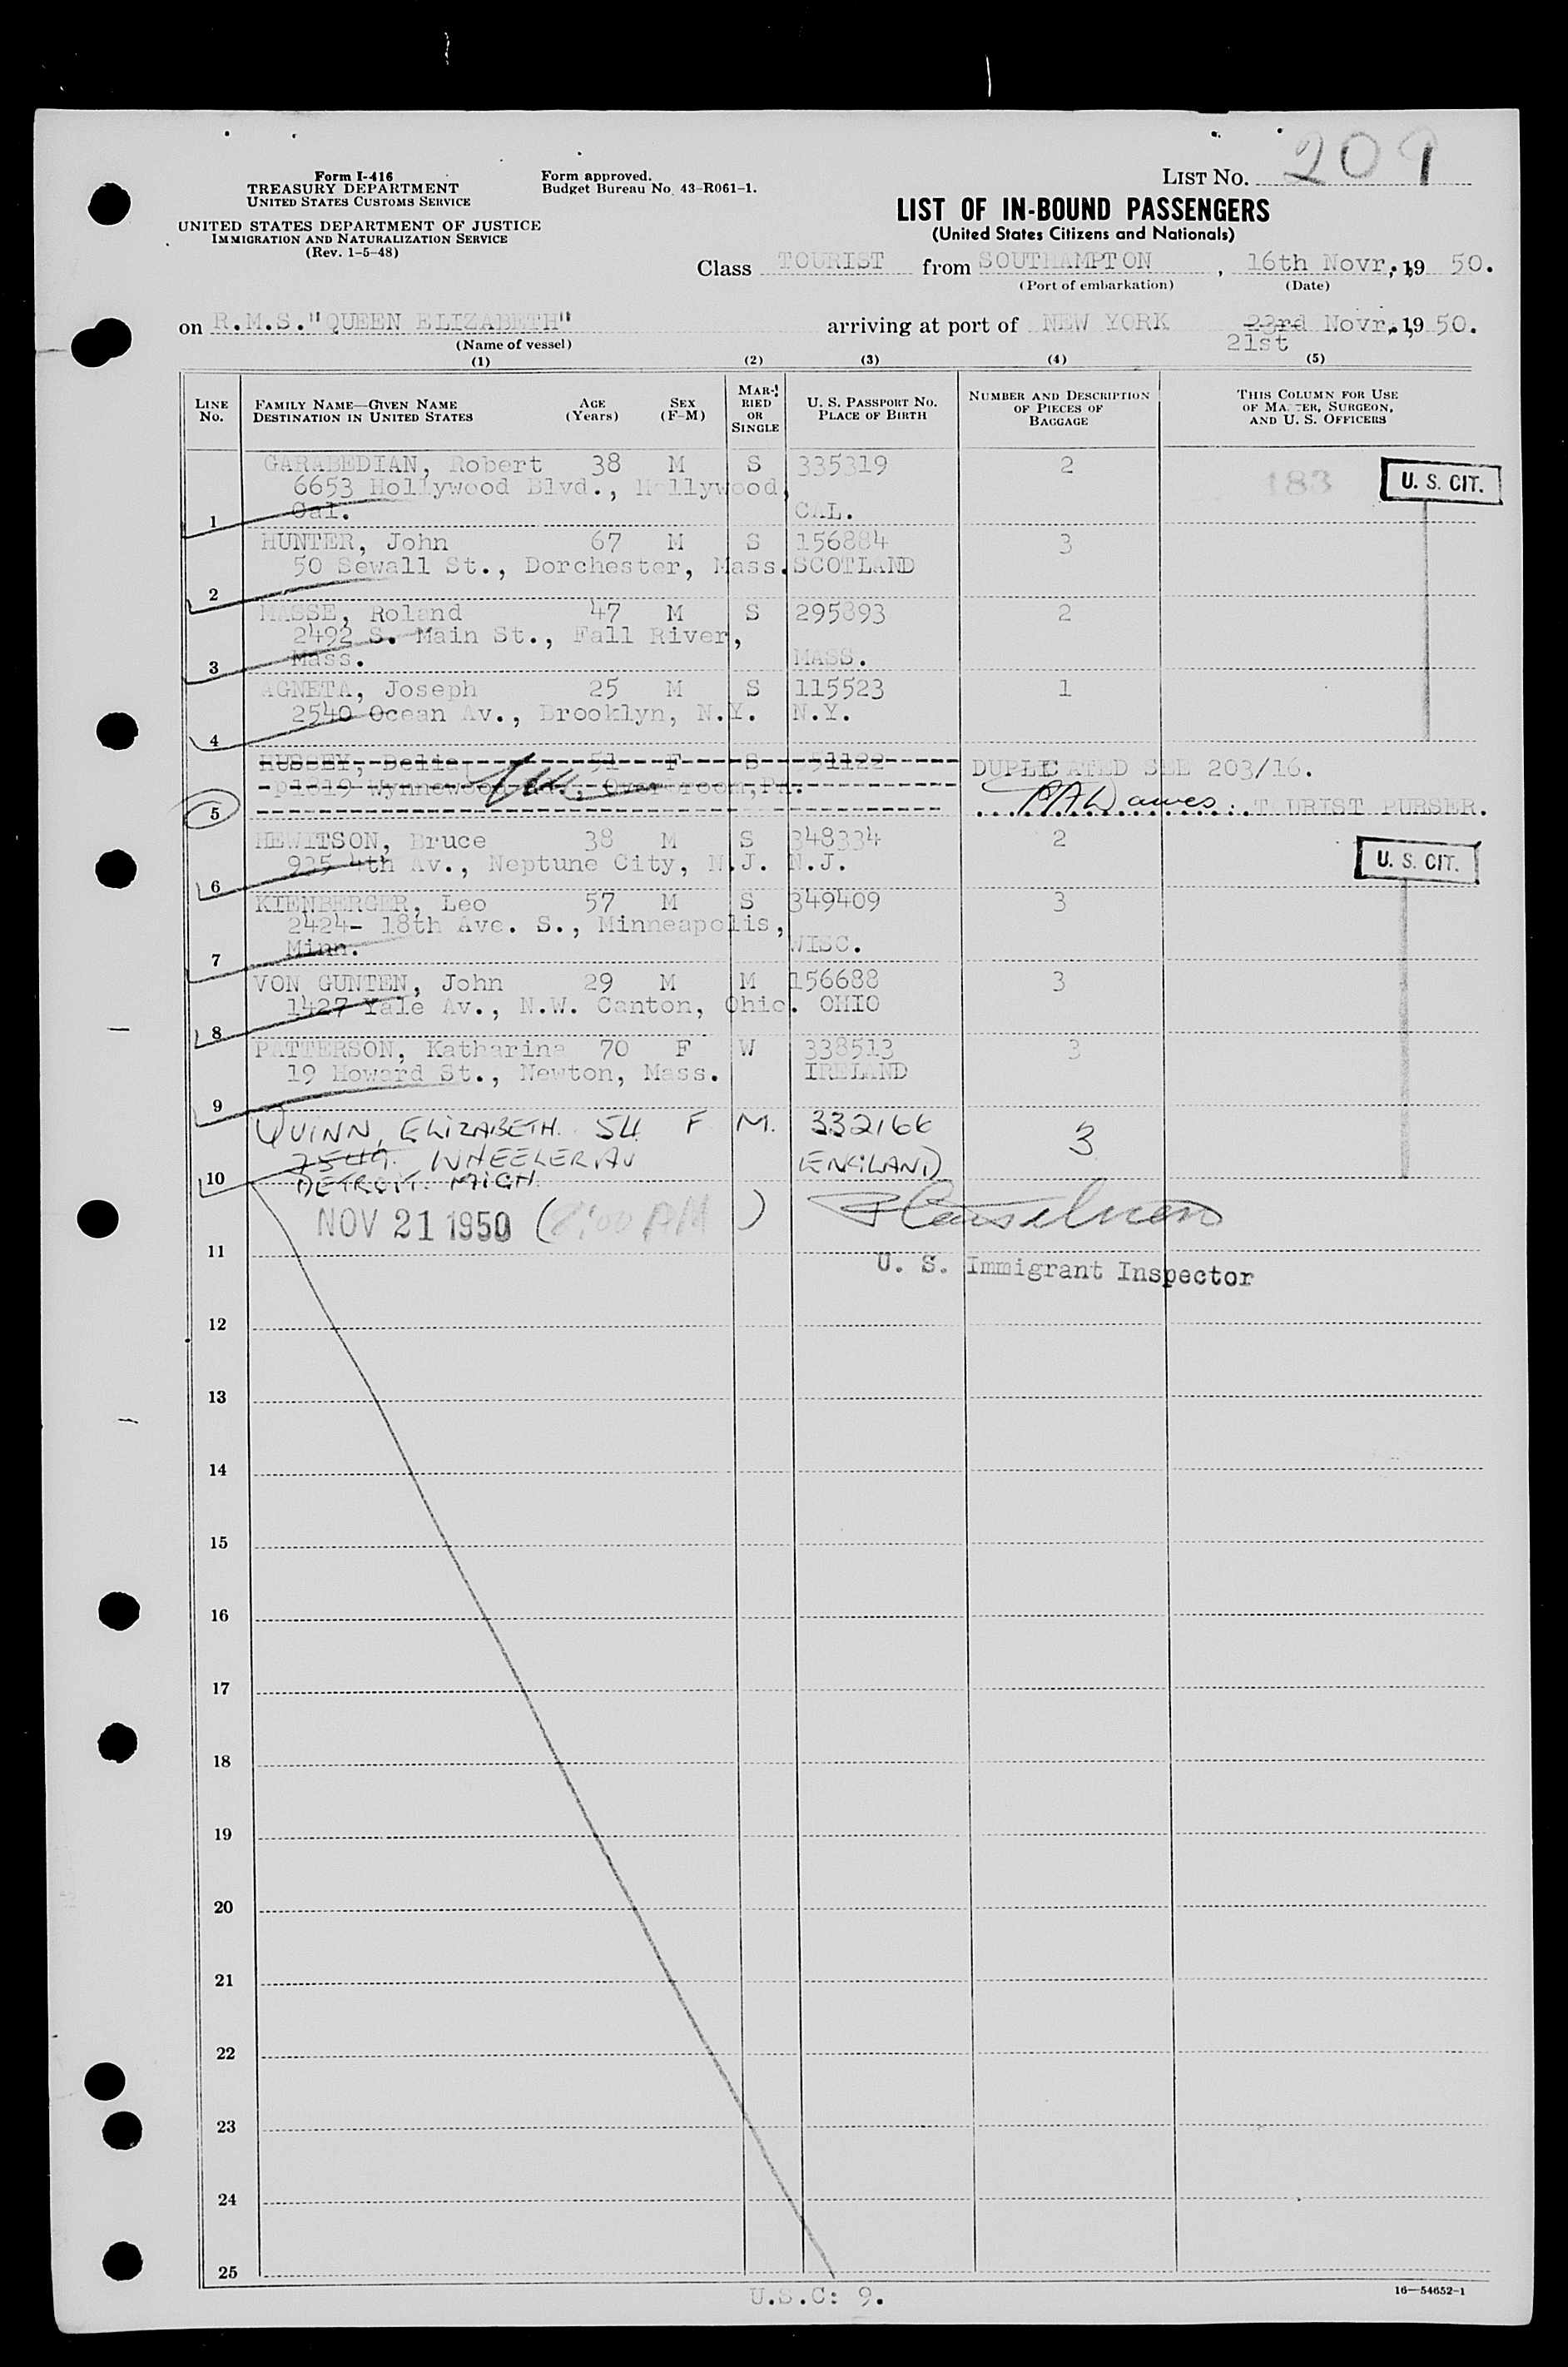 209
Form I-416
TREASURY DEPARTMENT
UNITED STATES CUSTOMS SERVICE
Form approved.
Budget Bureau No. 43-R061-1.
LIST NO.
UNITED STATES DEPARTMENT OF JUSTICE
IMMIGRATION AND NATURALIZATION SERVICE
(Rev. 1-5-48)
LIST OF IN-BOUND PASSENGERS
(United States Citizens and Nationals)
Class TOURIST from SOUTHAMPTON, 16th Novr., 19 50.
(Port of embarkation) (Date)
on R.M.S. "QUEEN ELIZABETH" arriving at port of NEW YORK 23rd Novr., 19 50.
21st
(Name of vessel)
(1) (2) (3) (4) (5)
LINE NO. FAMILY NAME—GIVEN NAME DESTINATION IN UNITED STATES AGE (Years) SEX (F-M) MARRIED OR SINGLE U. S. PASSPORT NO. PLACE OF BIRTH NUMBER AND DESCRIPTION OF PIECES OF BAGGAGE THIS COLUMN FOR USE OF MASTER, SURGEON, AND U. S. OFFICERS
GARABEDIAN, Robert 38 M S 335319 2 183 U. S. CIT.
6653 Hollywood Blvd., Hollywood,
1 Cal. CAL.
HUNTER, John 67 M S 156884 3
50 Sewall St., Dorchester, Mass. SCOTLAND
2
MASSE, Roland 47 M S 295893 2
2492 S. Main St., Fall River,
3 Mass. MASS.
AGNETA, Joseph 25 M S 115523 1
2540 Ocean Av., Brooklyn, N.Y. N.Y.
4
HUSSEY, Delia 51 F S 351122 DUPLICATED SEE 203/16.
1819 Wynnewood Overbroom, Pa.
5 P.A. Dawes. TOURIST PURSER.
HEWITSON, Bruce 38 M S 348334 2 U. S. CIT.
935 4th Av., Neptune City, N.J. N.J.
6
KIENBERGER, Leo 57 M S 349409 3
2424- 18th Ave. S., Minneapolis,
7 Minn. WISC.
VON GUNTEN, John 29 M M 156688 3
1427 Yale Av., N.W. Canton, Ohio. OHIO
8
PATTERSON, Katharina 70 F W 338513 3
19 Howard St., Newton, Mass. IRELAND
9
QUINN, ELIZABETH. 54 F M. 332166 3
7549. WHEELER. AV (ENGLAND)
10 DETROIT. MICH.
NOV 21 1950 (8:00 AM)
11
U. S. Immigrant Inspector
12
13
14
15
16
17
18
19
20
21
22
23
24
25
U.S.C: 9.
16—54652-1